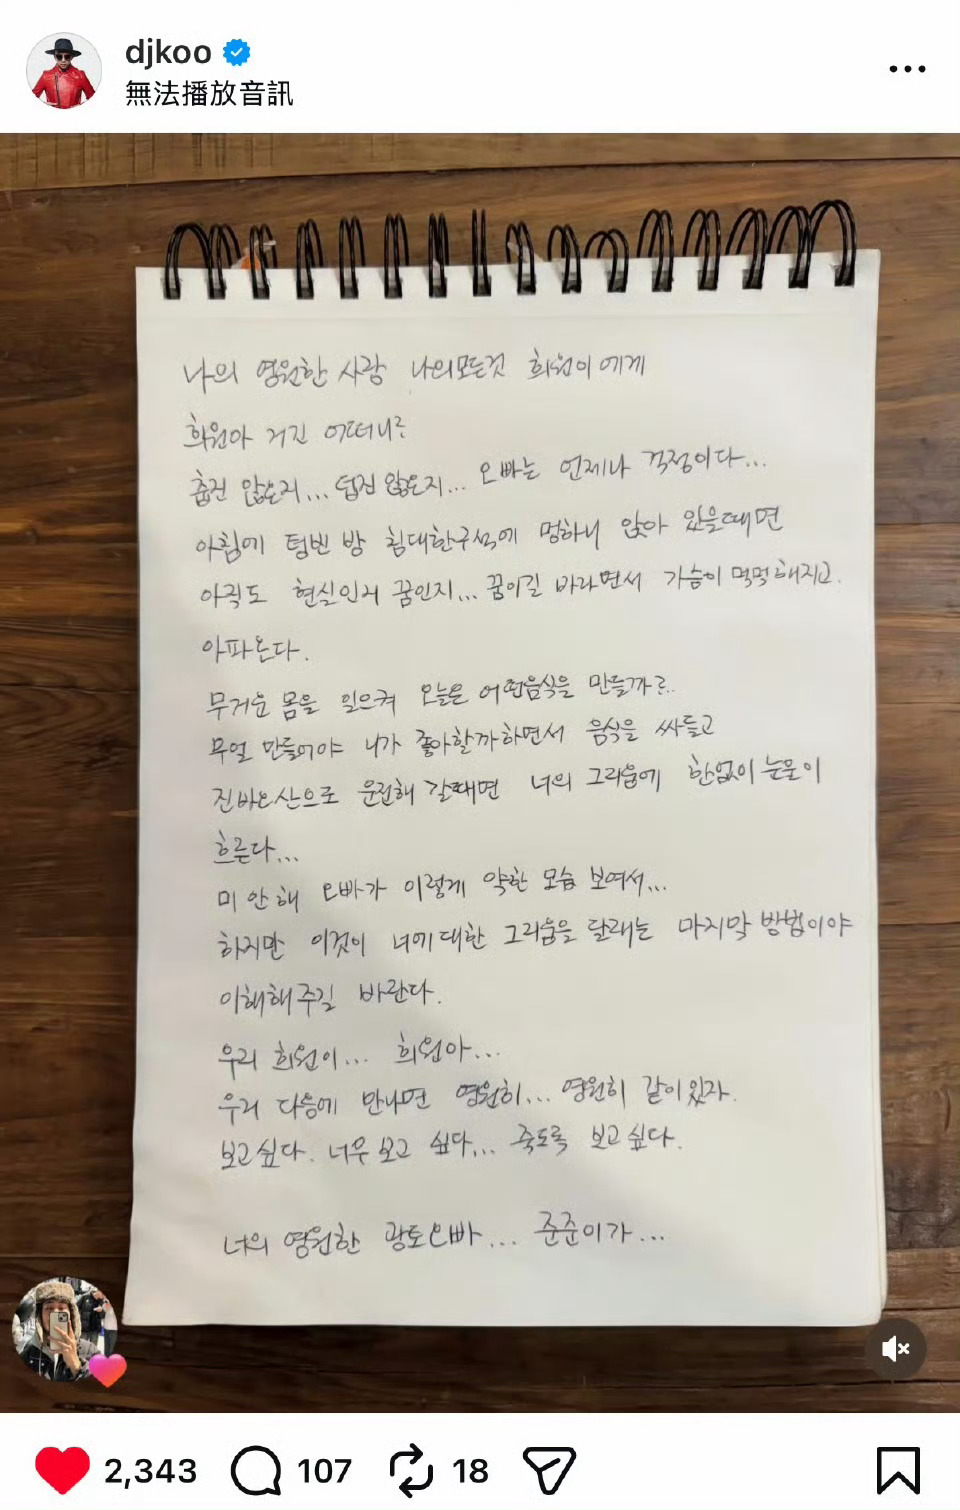 djkoo
無法播放音訊
나의 영원한 사랑 나의모든것 희원이에게
희원아 거긴 어떠니?
춥진 않은지... 덥진 않은지... 오빠는 언제나 걱정이다...
아침에 텅빈 방 침대한구석에 멍하니 앉아 있을때면
아직도 현실인지 꿈인지... 꿈이길 바라면서 가슴이 먹먹해지고.
아파온다.
무거운 몸을 일으켜 오늘은 어떤음식을 만들까?..
무얼 만들어야 니가 좋아할까하면서 음식을 싸들고
진바오산으로 운전해 갈때면 너의 그리움에 한없이 눈물이
흐른다...
미안해 오빠가 이렇게 약한 모습 보여서...
하지만 이것이 너에대한 그리움을 달래는 마지막 방법이야
이해해주길 바란다.
우리 희원이... 희원아...
우리 다음에 만나면 영원히... 영원히 같이있자.
보고싶다. 너무 보고 싶다... 죽도록 보고싶다.
너의 영원한 광토오빠... 준준이가...
2,343 107 18